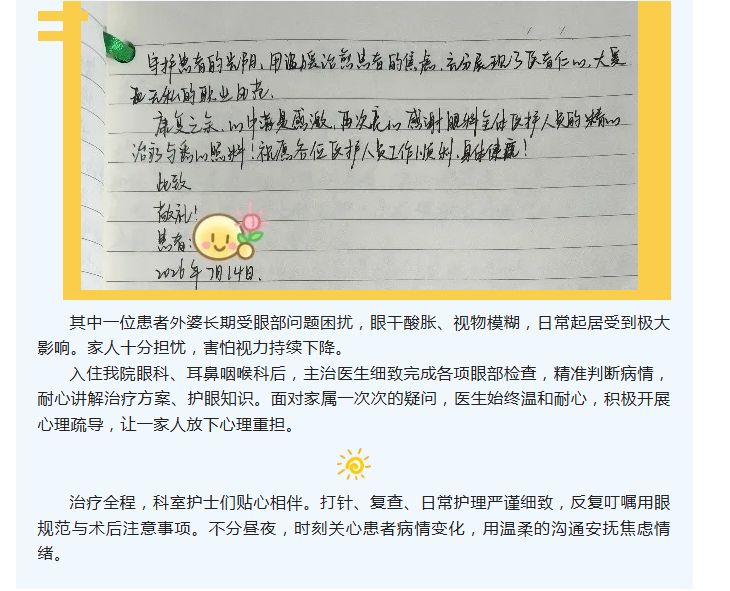 守护患者的光明，用温暖治愈患者的焦虑，充分展现了医者仁心，大爱
无私的职业风范。
康复之余，心中满是感激，再次衷心感谢眼科全体医护人员的精心
治疗与悉心照料！祝愿各位医护人员工作顺利，身体健康！
此致
敬礼！
患者：
2026年7月14日.
其中一位患者外婆长期受眼部问题困扰，眼干酸胀、视物模糊，日常起居受到极大
影响。家人十分担忧，害怕视力持续下降。
入住我院眼科、耳鼻咽喉科后，主治医生细致完成各项眼部检查，精准判断病情，
耐心讲解治疗方案、护眼知识。面对家属一次次的疑问，医生始终温和耐心，积极开展
心理疏导，让一家人放下心理重担。
治疗全程，科室护士们贴心相伴。打针、复查、日常护理严谨细致，反复叮嘱用眼
规范与术后注意事项。不分昼夜，时刻关心患者病情变化，用温柔的沟通安抚焦虑情
绪。